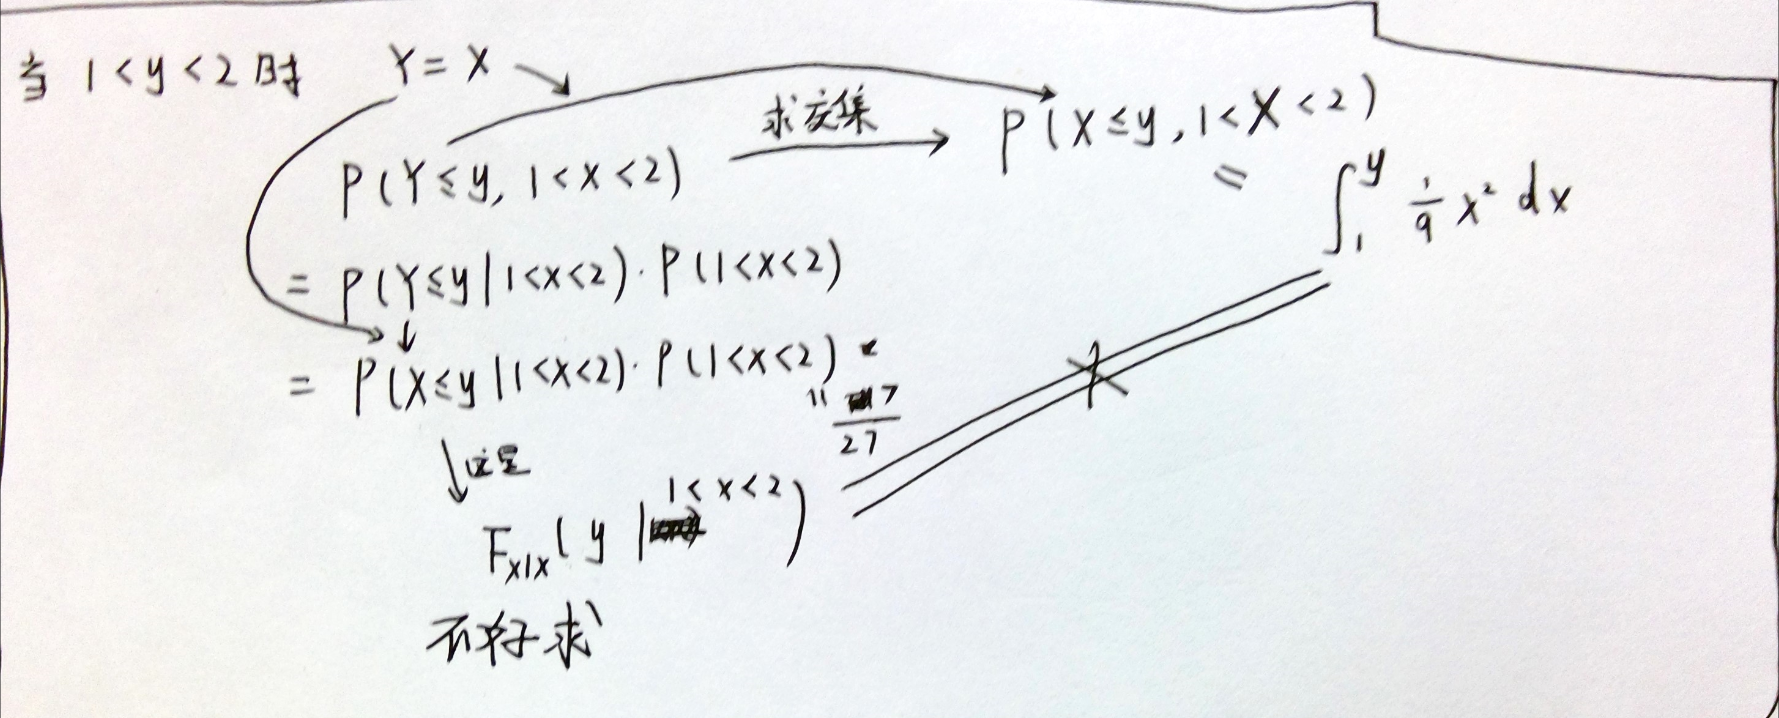 当 1<y<2 时 Y=X
P(Y≤y, 1<X<2) 求交集 P(X≤y, 1<X<2)
= ∫₁ʸ 1/9 x² dx
= P(Y≤y|1<X<2)·P(1<X<2)
= P(X≤y|1<X<2)·P(1<X<2)
" 7/27
这是
F_{X|X}(y | 1<X<2)
不好求